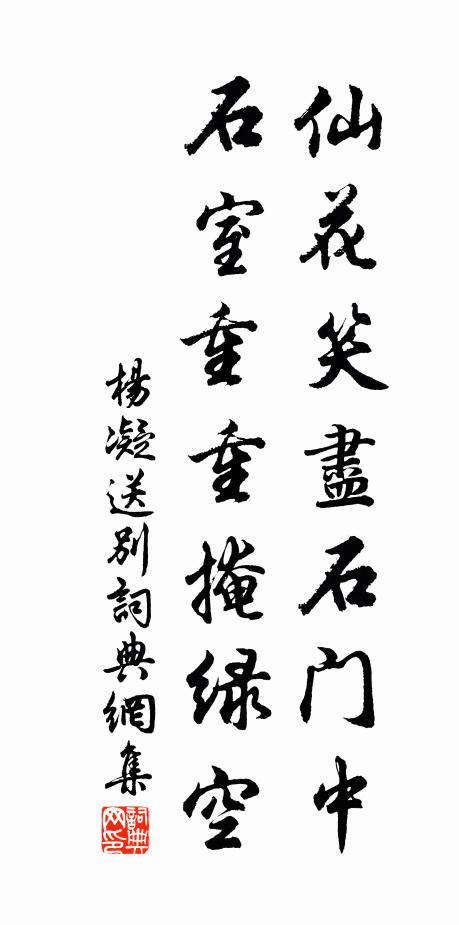 仙花笑盡石門中
石室重重掩绿空
楊凝送别詞典網集
詞典
网印